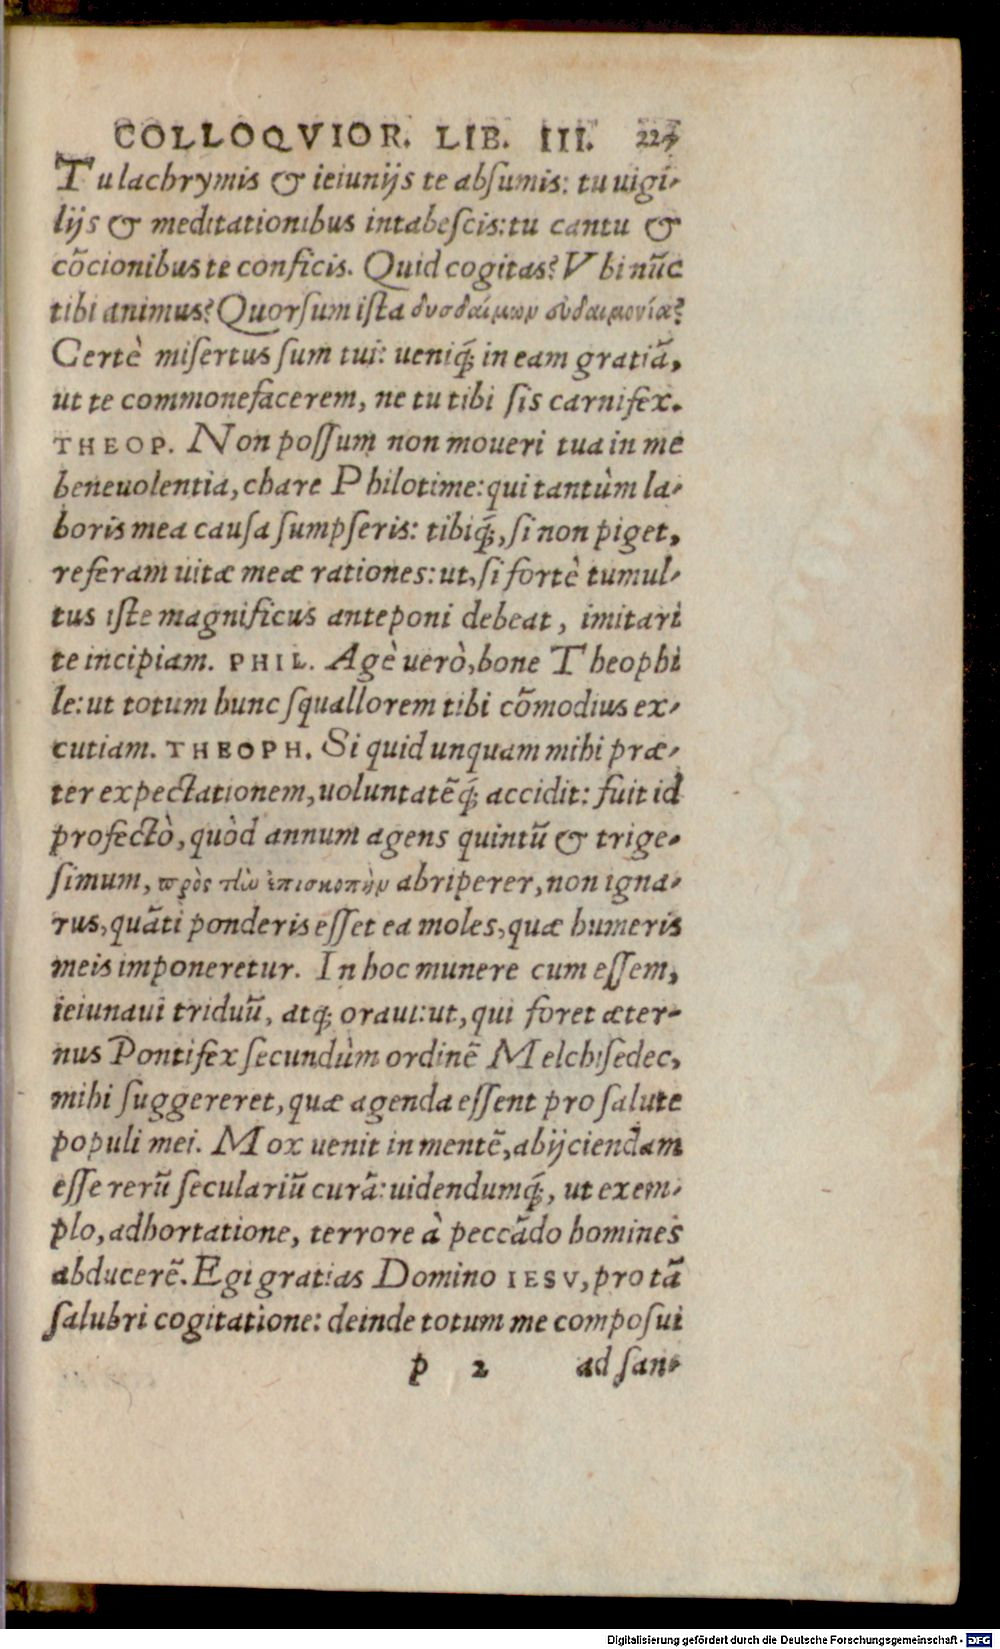 COLLOQVIOR. LIB. III. 227
Tu lachrymis & ieiunijs te absumis: tu uigi-
lijs & meditationibus intabescis: tu cantu &
cõcionibus te conficis. Quid cogitas? Vbi nũc
tibi animus? Quorsum ista δυσδαίμων εὐδαιμονία?
Certè misertus sum tui: ueniq́; in eam gratiã,
ut te commonefacerem, ne tu tibi sis carnifex.
THEOP. Non possum non moueri tua in me
beneuolentia, chare Philotime: qui tantùm la-
boris mea causa sumpseris: tibiq́;, si non piget,
referam uitæ meæ rationes: ut, si fortè tumul-
tus iste magnificus anteponi debeat, imitari
te incipiam. PHIL. Agè uerò, bone Theophi
le: ut totum hunc squallorem tibi cõmodius ex-
cutiam. THEOPH. Si quid unquam mihi præ-
ter expectationem, uoluntatẽq́; accidit: fuit id
profectò, quòd annum agens quintũ & trige-
simum, πρὸς τὴν ἐπισκοπὴν abriperer, non igna-
rus, quãti ponderis esset ea moles, quæ humeris
meis imponeretur. In hoc munere cum essem,
ieiunaui triduũ, atq; oraui: ut, qui foret æter-
nus Pontifex secundùm ordinẽ Melchisedec,
mihi suggereret, quæ agenda essent pro salute
populi mei. Mox uenit in mentẽ, abijciendam
esse rerũ seculariũ curã: uidendumq́;, ut exem-
plo, adhortatione, terrore à peccãdo homines
abducerẽ. Egi gratias Domino IESV, pro tã
salubri cogitatione: deinde totum me composui
p 2 ad san-
Digitalisierung gefördert durch die Deutsche Forschungsgemeinschaft - DFG